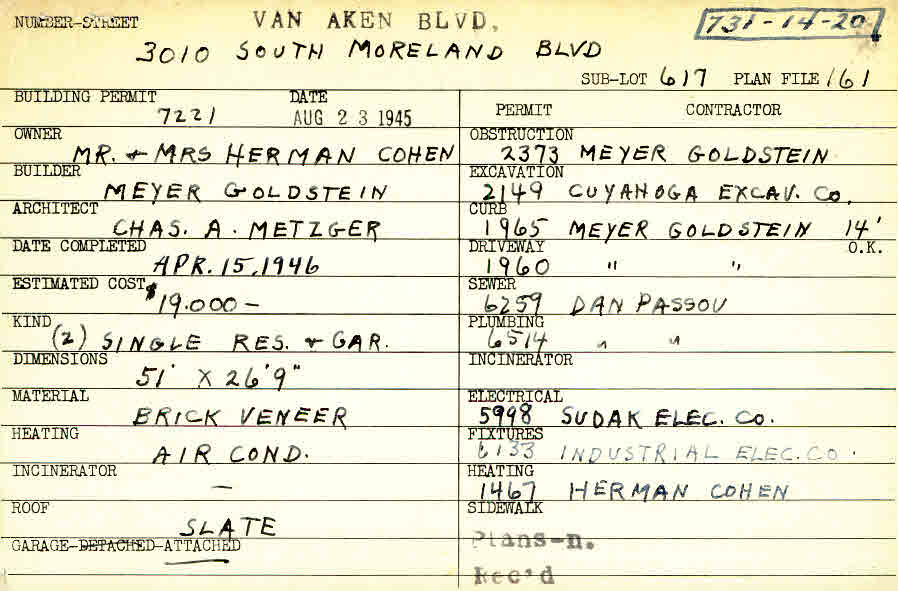 NUMBER-STREET VAN AKEN BLVD. 731-14-20
3010 SOUTH MORELAND BLVD
SUB-LOT 617 PLAN FILE 161
BUILDING PERMIT DATE
7221 AUG 23 1945
PERMIT CONTRACTOR
OWNER
MR. + MRS HERMAN COHEN
OBSTRUCTION
2373 MEYER GOLDSTEIN
BUILDER
MEYER GOLDSTEIN
EXCAVATION
2149 CUYAHOGA EXCAV. CO.
ARCHITECT
CHAS. A. METZGER
CURB
1965 MEYER GOLDSTEIN 14'
DATE COMPLETED
APR. 15, 1946
DRIVEWAY O.K.
1960 " "
ESTIMATED COST
$19.000 —
SEWER
6259 DAN PASSOV
KIND
(2) SINGLE RES. + GAR.
PLUMBING
6514 " "
DIMENSIONS
51' X 26'9"
INCINERATOR
MATERIAL
BRICK VENEER
ELECTRICAL
5998 SUDAK ELEC. CO.
HEATING
AIR COND.
FIXTURES
6133 INDUSTRIAL ELEC. CO.
INCINERATOR
—
HEATING
1467 HERMAN COHEN
ROOF
SLATE
SIDEWALK
GARAGE-DETACHED-ATTACHED
Plans-n.
Rec'd